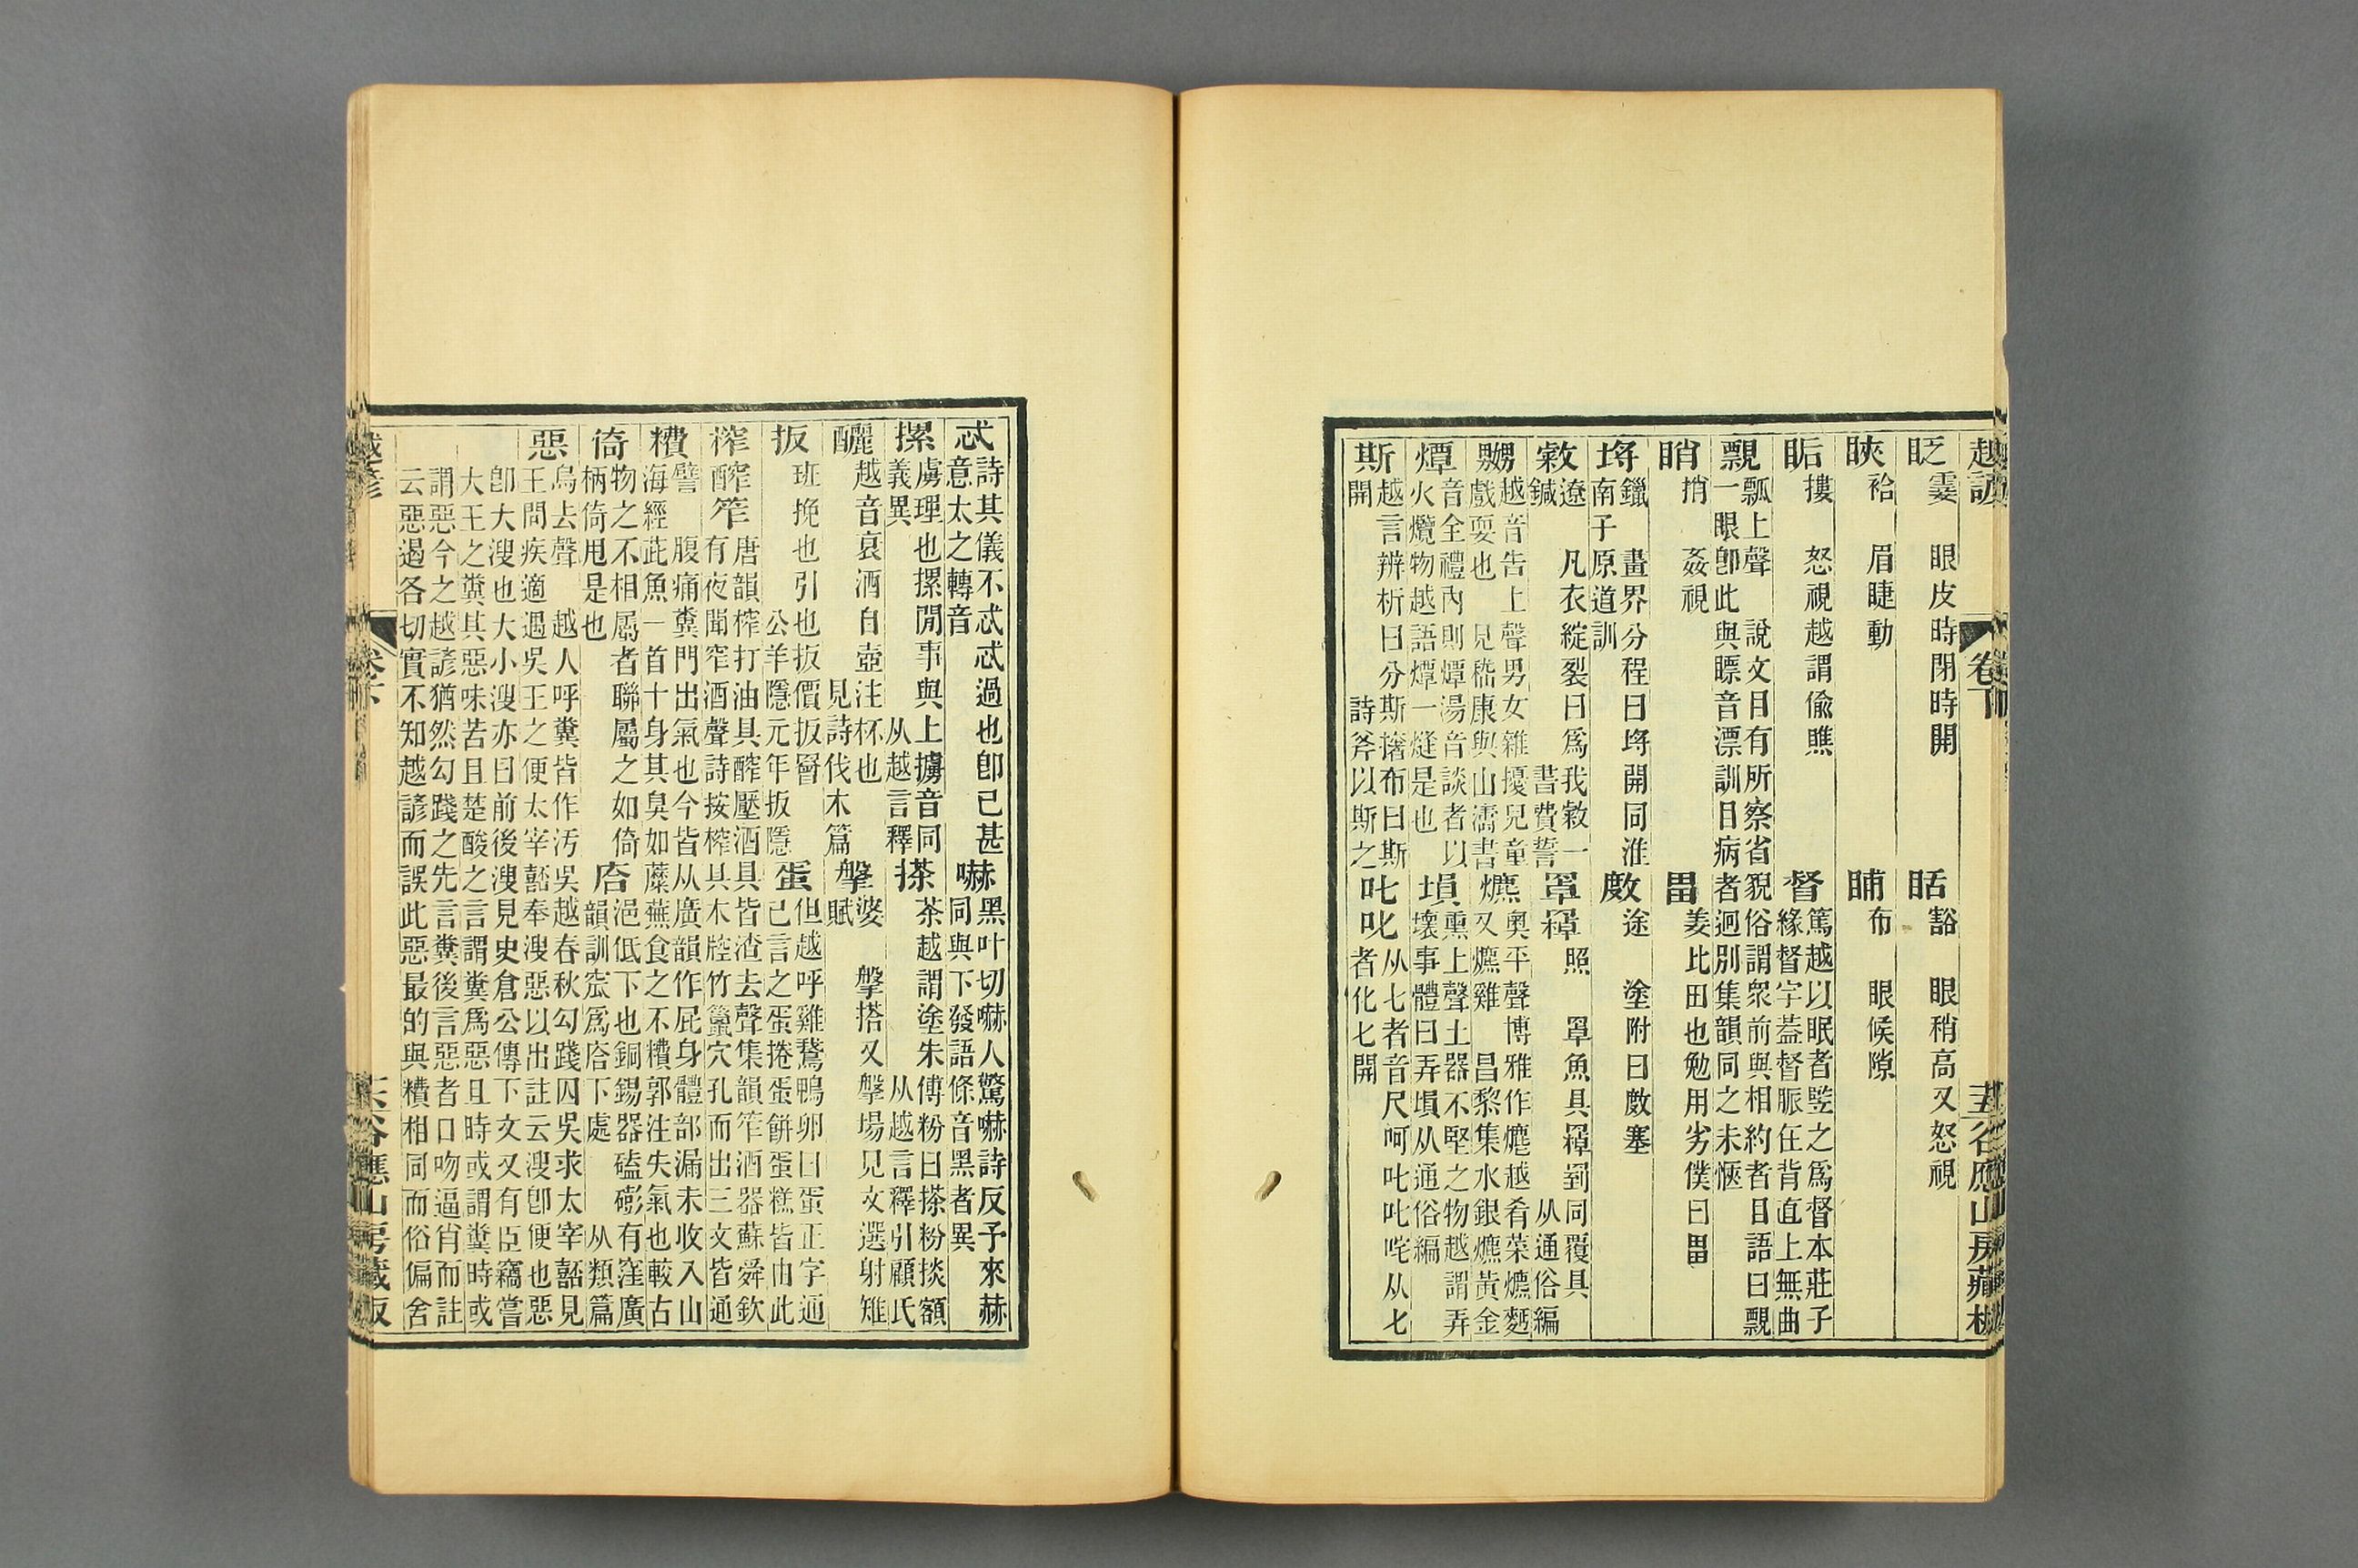 越諺 卷下 谷應山房藏板
眨 霎 眼皮時閉時開 𥆚 豁 眼稍高又怒視
䀹 袷 眉睫動 䀯 布 眼候隙
䀫 摟 怒視越謂偸瞧 督 篤越以眠者豎之爲督本莊子
緣督字蓋督脈在背直上無曲
覼 瓢上聲 說文目有所察省
一眼卽此與瞟音漂訓目病者迥別集韻同之未愜
貎俗謂衆前與相約者目語曰覼
睄 捎 姦視 畕 姜比田也勉用劣僕曰畕
埒 鑞 畫界分程曰埒開同淮
南子原道訓 敳 途 塗附曰敳塞
敹 遼 凡衣綻裂曰爲我敹一
鍼 書費誓 罩 䍜 照 罩魚具䍜到同覆具
从通俗編
嬲 越音告上聲男女雜擾兒童
戲耍也 見嵇康與山濤書
爊 奧平聲博雅作爊越肴菜爊麪
又爊雞 昌黎集水銀爊黃金
燂 音全禮內則燂湯音談者以
火爁物越語燂一燵是也
塤 熏上聲土器不堅之物越謂弄
壞事體曰弄塤从通俗編
斯 越言辨析曰分斯撦布曰斯
開 詩斧以斯之
叱 𠮟 从七者音尺呵叱叱咤从匕
者化匕開
忒 詩其儀不忒忒過也卽已甚
意太之轉音
嚇 黑叶切嚇人驚嚇詩反予來赫
同與下發語條音黑者異
摞 虜理也摞閒事與上擄音同
義異 从越言釋
搽 茶越謂塗朱傅粉曰搽粉掞額
从越言釋引顧氏
釃 越音哀酒自壺注杯也
見詩伐木篇
搫 婆 搫搭又搫場見文選射雉
賦
扳 班挽也引也扳價扳罾
公羊隱元年扳隱
蛋 但越呼雞鵞鴨卵曰蛋正字通
已言之蛋捲蛋餅蛋糕皆由此
榨 醡 笮 唐韻榨打油具醡壓酒具皆渣去聲集韻笮酒器蘇舜欽
有夜聞窄酒聲詩按榨具木䏶竹籠穴孔而出三文皆通
糟 譬 腹痛糞門出氣也今皆从廣韻作屁身體部漏未收入山
海經茈魚一首十身其臭如蘪蕪食之不糟郭注失氣也較古
倚 物之不相屬者聯屬之如倚
柄倚甩是也
㕎 浥低下也銅錫器磕硼有窪廣
韻訓㓃爲㕎下處 从類篇
惡 烏去聲 越人呼糞皆作汚吳越春秋勾踐囚吳求太宰嚭見
王問疾適遇吳王之便太宰嚭奉溲惡以出註云溲卽便也惡
卽大溲也大小溲亦曰前後溲見史倉公傳下文又有臣竊嘗
大王之糞其惡味苦且楚酸之言謂糞爲惡且時或謂糞時或
謂惡今之越諺猶然勾踐之先言糞後言惡者口吻逼肖而註
云惡遏各切實不知越諺而誤此惡最的與糟相同而俗偏舍
越諺 卷下 谷應山房藏板